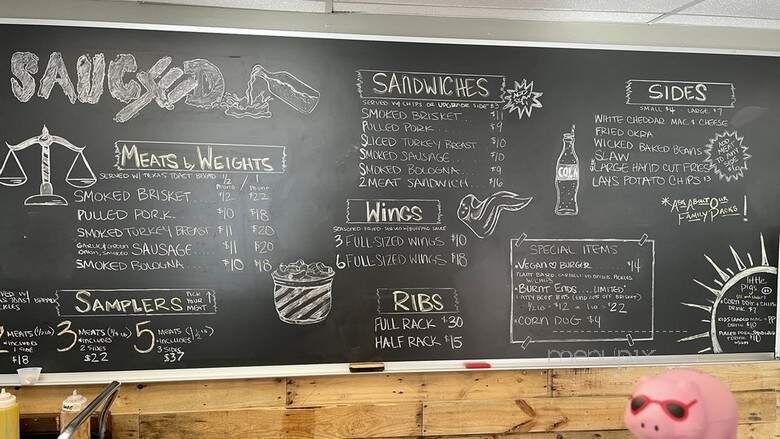 SAUCED
MEATS by WEIGHTS
SERVED W/ TEXAS TOAST BREAD 1/2 POUND 1 POUND
SMOKED BRISKET $12 $22
PULLED PORK $10 $18
SMOKED TURKEY BREAST $11 $20
GARLIC & GREEN ONION, SMOKED SAUSAGE $11 $20
SMOKED BOLOGNA $10 $18
SAMPLERS PICK YOUR MEAT
MEATS (1/2 lb)
INCLUDES
1 SIDE
$18
3 MEATS (3/4 lb)
INCLUDES
2 SIDES
$22
5 MEATS
INCLUDES
3 SIDES
$37
SANDWICHES
SERVED W/ CHIPS OR UPGRADE SIDE $3
SMOKED BRISKET $11
PULLED PORK $9
SLICED TURKEY BREAST $10
SMOKED SAUSAGE $10
SMOKED BOLOGNA $9
2 MEAT SANDWICH $16
WINGS
3 FULL SIZED WINGS $10
6 FULL SIZED WINGS $18
RIBS
FULL RACK $30
HALF RACK $15
COLA
SIDES
SMALL $4 LARGE $7
WHITE CHEDDAR MAC & CHEESE
FRIED OKRA
WICKED BAKED BEANS
SLAW
LARGE HAND CUT FRIES
LAYS POTATO CHIPS
ADD MEAT TO ANY SIDE
*ASK ABOUT OUR FAMILY PACKS!
SPECIAL ITEMS
• VEGAN BURGER $14
• BURNT ENDS.... LIMITED*
1/2 lb $12 - 1 lb $22
• CORN DOG $4
little Pigs
• CORN DOG & CHIPS
DRINK $7
menupix